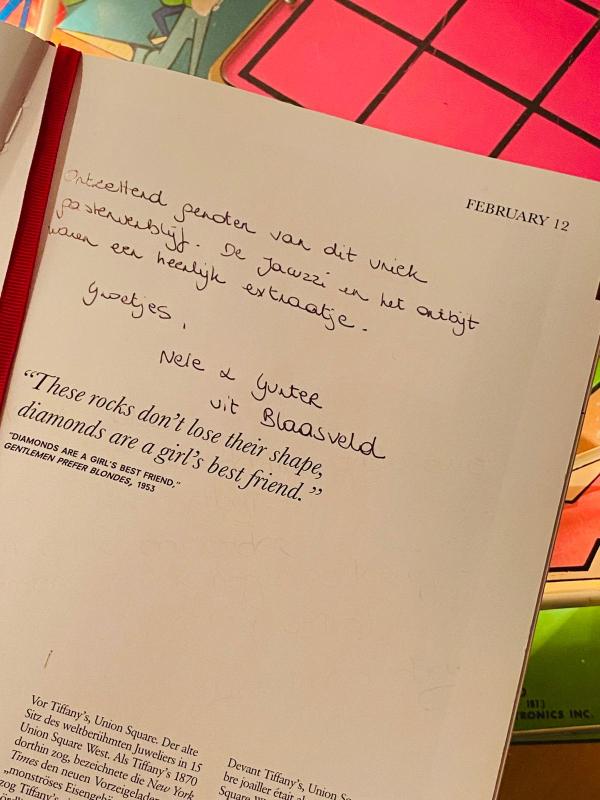 FEBRUARY 12
Ontzettend genoten van dit uniek
gastenverblijf. De Jacuzzi en het ontbijt
waren een heerlijk extraatje.
Groetjes,
Nele & Gunter
uit Blaasveld
“These rocks don’t lose their shape,
diamonds are a girl’s best friend.”
“DIAMONDS ARE A GIRL’S BEST FRIEND,”
GENTLEMEN PREFER BLONDES, 1953
Vor Tiffany’s, Union Square. Der alte
Sitz des weltberühmten Juweliers in 15
Union Square West. Als Tiffany’s 1870
dorthin zog, bezeichnete die New York
Times den neuen Vorzeigeladen
„monströses
zog Tiffany’s
Devant Tiffany’s, Union
bre joaillier était
Square
RONICS INC.